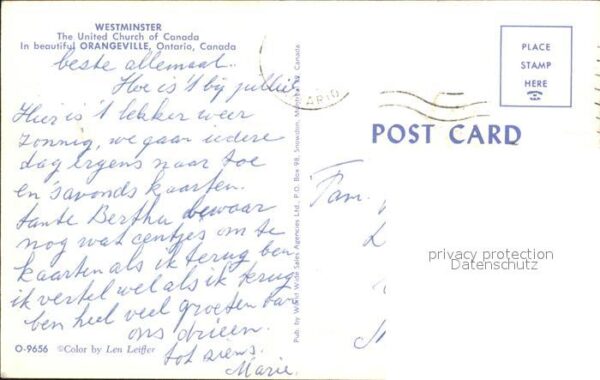 WESTMINSTER
The United Church of Canada
In beautiful ORANGEVILLE, Ontario, Canada
beste allemaal..
Hoe is 't bij jullie
Hier is 't lekker weer
zonnig, we gaan iedere
dag ergens naar toe
en 's avonds kaarten.
tante Bertha bewaar
nog wat centjes om te
kaarten als ik terug ben,
ik vertel wel als ik terug
ben heel veel groeten van
ons drieen.
tot ziens.
Marie.
O-9656 ©Color by Len Leiffer
Pub. by World Wide Sales Agencies Ltd., P.O. Box 98, Snowdon, Montreal, Canada
PLACE
STAMP
HERE
POST CARD
Fam.
privacy protection
Datenschutz